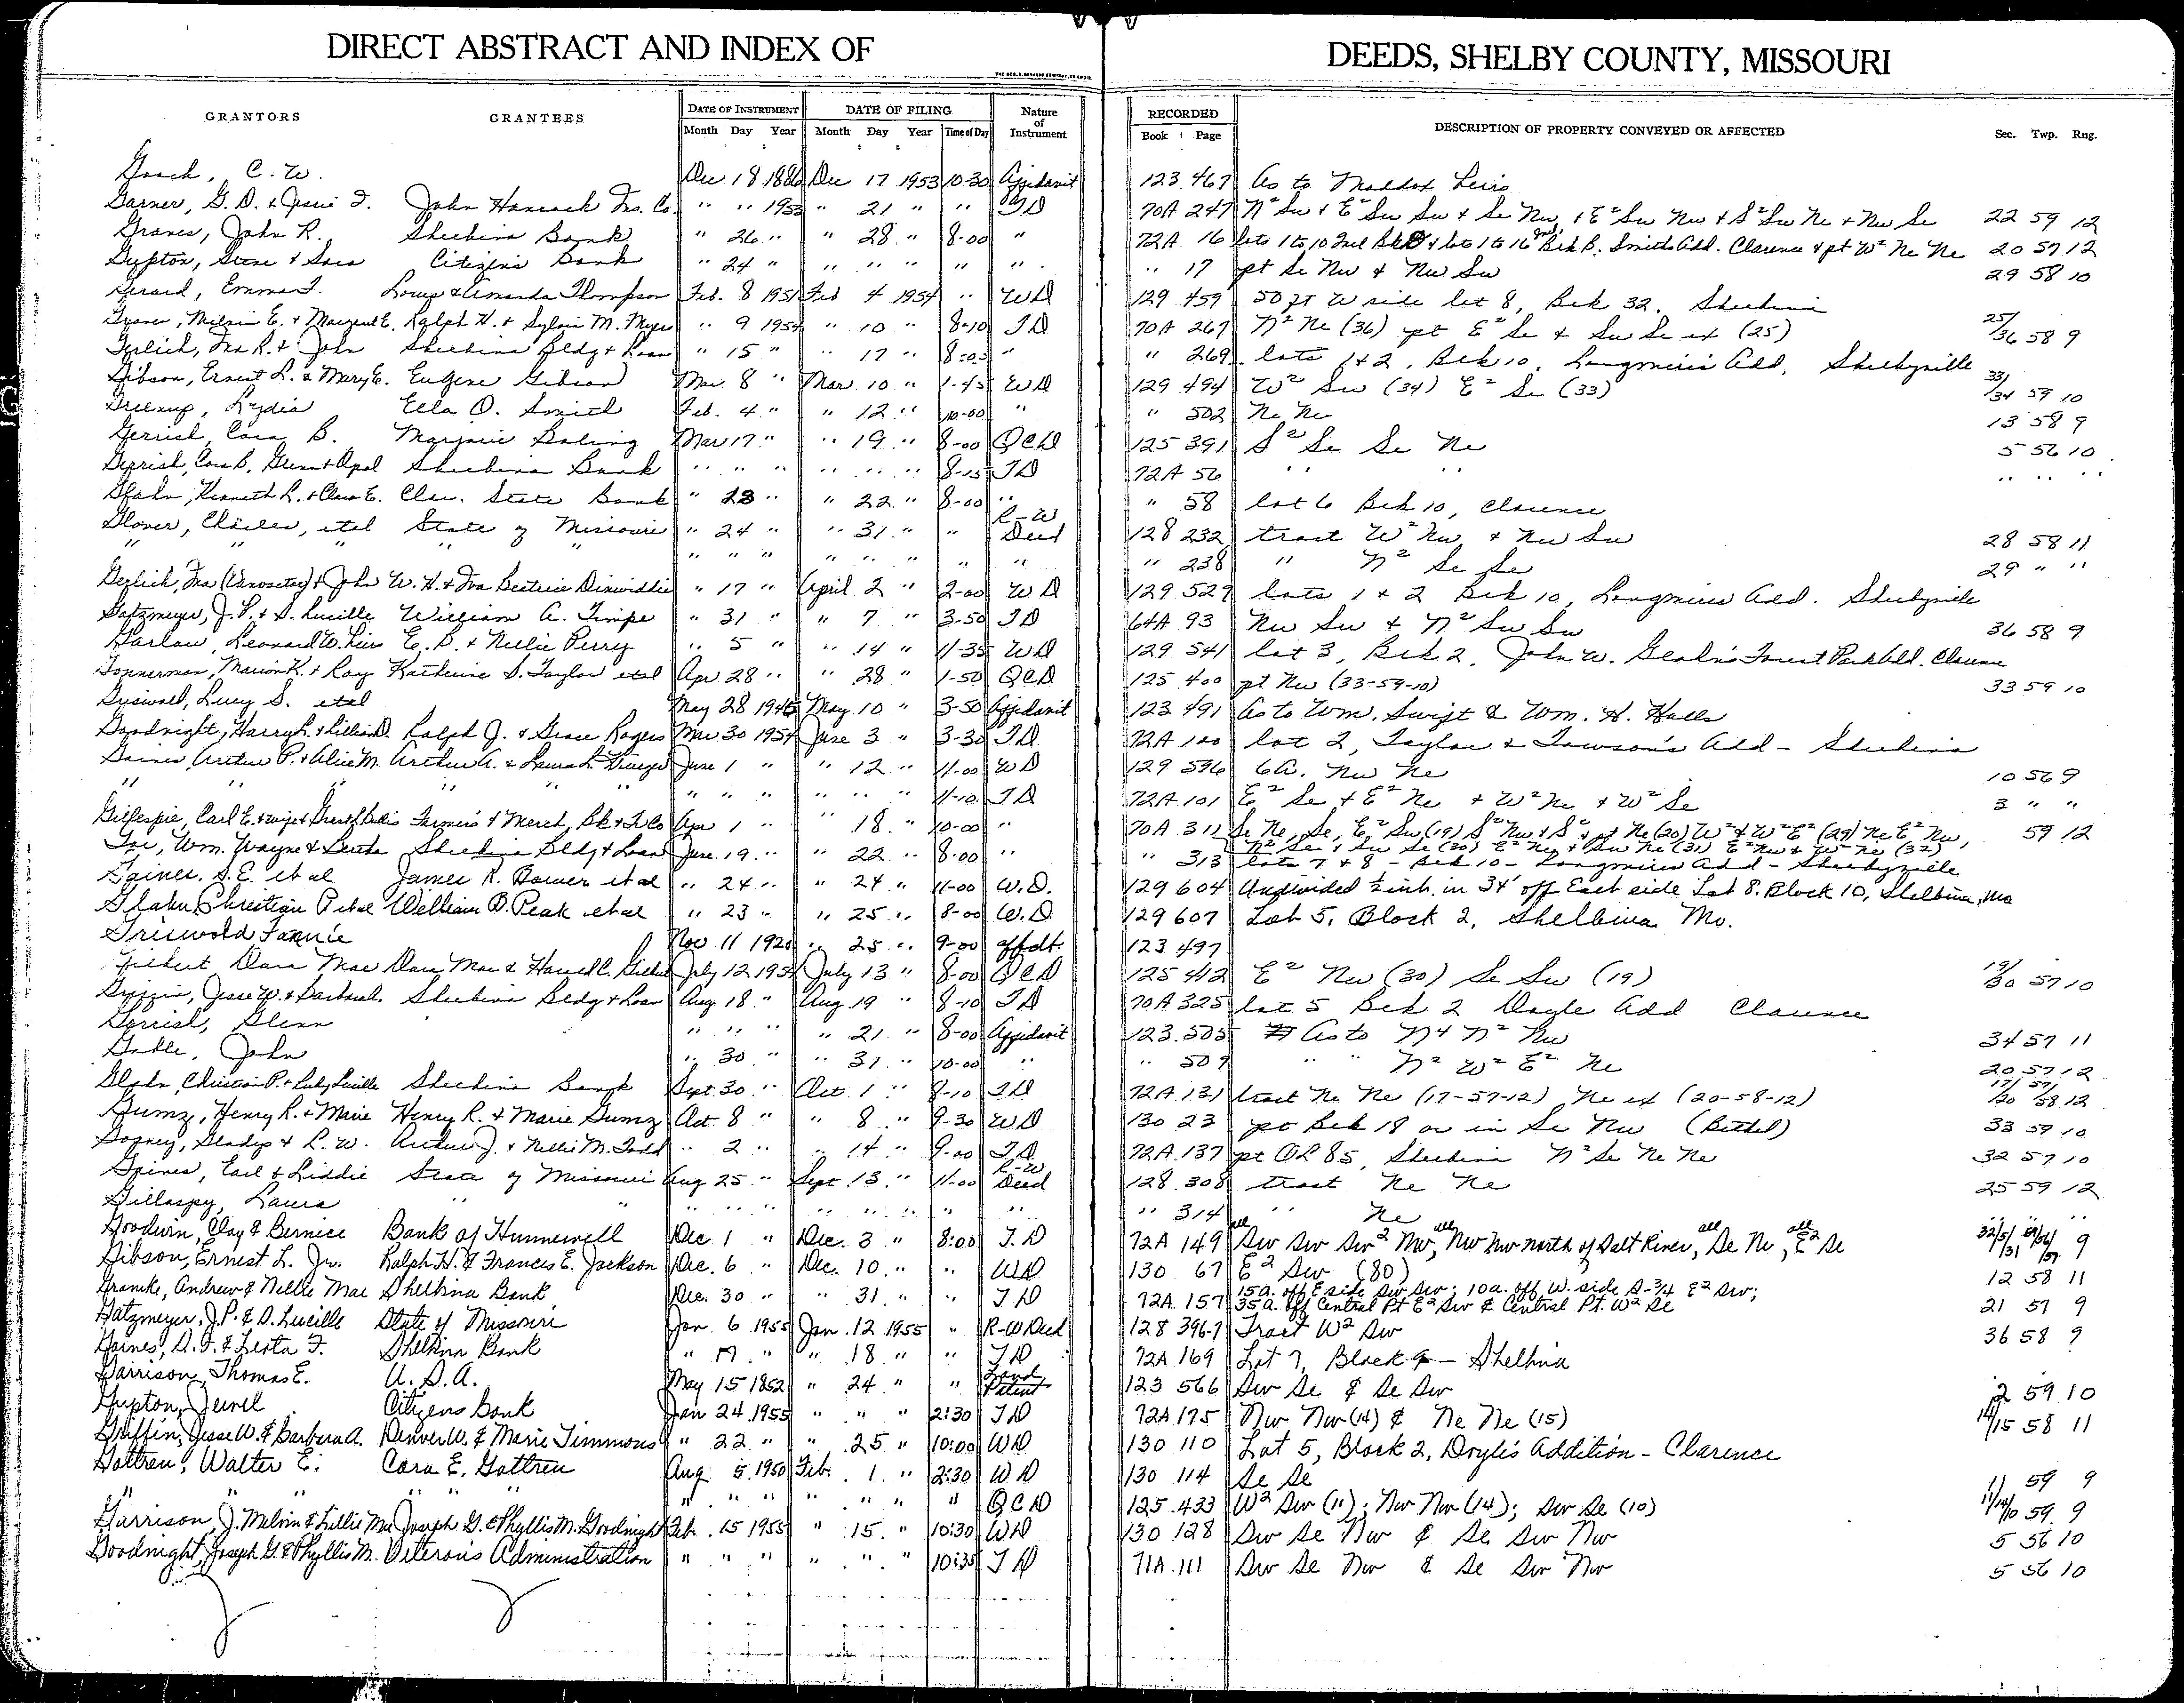 DIRECT ABSTRACT AND INDEX OF DEEDS, SHELBY COUNTY, MISSOURI
GRANTORS GRANTEES DATE OF INSTRUMENT Month Day Year DATE OF FILING Month Day Year Time of Day Nature of Instrument RECORDED Book Page DESCRIPTION OF PROPERTY CONVEYED OR AFFECTED Sec. Twp. Rng.
Gooch, C. W. Dec 18 1886 Dec 17 1953 10-30 Affidavit 123 467 As to Maddox Heirs
Garner, G. D. & Jessie F. John Hancock Ins. Co. " " 1953 " 21 " " TD 70A 247 N² Sw & E² Sw Sw & Se Nw, & E² Sw Nw & S² Sw Ne & Nw Se 22 59 12
Graves, John R. Shelbina Bank " 26 " " 28 " 8-00 " 72A 16 lots 1 to 10 Incl Blk & lots 1 to 16 Incl Blk B. Smith Add. Clarence & pt W² Ne Ne 20 57 12
Gupton, Citizens Bank " 24 " " " " " " " 17 pt Se Nw & Nw Sw 29 58 10
Gerard, Emma F. Louis & Amanda Thompson Feb. 8 1951 Feb 4 1954 " WD 129 459 50 ft W side lot 8, Blk 32, Shelbina
Melvin E. & Margaret E. Ralph H. & Sylvia M. Myers " 9 1954 " 10 " 8-10 TD 70A 267 N² Ne (36) pt E² Se & Sw Se ex (25) 25/36 58 9
Gerlich, Iva R. & John Shelbina Bldg & Loan " 15 " " 17 " 8:05 " " 269 lots 1 & 2, Blk 10, Longmire's Add, Shelbyville
Gibson, Ernest L. & Mary E. Eugene Gibson Mar 8 " Mar. 10 " 1-45 WD 129 494 W² Sw (34) E² Se (33) 33/34 59 10
Greenup, Lydia Ella O. Smith Feb. 4 " " 12 " 10-00 " " 502 Ne Ne 13 58 9
Gerrish, Cora B. Marjorie Boling Mar 17 " " 19 " 8-00 QCD 125 391 S² Se Se Ne 5 56 10
Gerrish, Cora B, Glenn & Opal Shelbina Bank " " " " " " 8-15 TD 72A 56 " " " " "
Glahn, Kenneth L. & Clara E. Clar. State Bank " 23 " " 22 " 8-00 " " 58 lot 6 Blk 10, Clarence
Glover, Charles, et al State of Missouri " 24 " " 31 " " R-W Deed 128 232 tract W² Nw & Nw Sw 28 58 11
" " " " " " " " " " " " " 238 " N² Se Se 29 " "
Gerlich, Iva & John W. H. & Iva Beatrice Dinwiddie " 17 " April 2 " 2-00 WD 129 527 lots 1 & 2 Blk 10, Longmires Add. Shelbyville
Gatzmeyer, J. P. & D. Lucille William A. Timpe " 31 " " 7 " 3-50 TD 64A 93 Nw Sw & N² Sw Sw 36 58 9
Garlow, Leonard W. Heirs E. B. & Nellie Perry " 5 " " 14 " 11-35 WD 129 541 lot 3, Blk 2, John W. Glahn's Forest Park Add. Clarence
Gonnerman, Marion K. & Ray Katherine S. Taylor et al Apr 28 " " 28 " 1-50 QCD 125 400 pt Nw (33-59-10) 33 59 10
Griswold, Lucy S. et al May 28 1945 May 10 " 3-50 Affidavit 123 491 As to Wm. Swift & Wm. H. Halls
Goodnight, Harry L. & Lillian D. Ralph J. & Grace Rogers Mar 30 1954 June 3 " 3-30 TD 72A 100 lot 2, Taylor & Towson's Add - Shelbina
Gaines, Arthur P. & Alice M. Arthur A. & Laura L. June 1 " " 12 " 11-00 WD 129 596 6A. Nw Ne 10 56 9
" " " " " " " " " " 11-10 TD 72A 101 E² Se & E² Ne & W² Ne & W² Se 3 " "
Gillespie, Carl E. & wife Farmers & Merch. Bk & T. Co Apr 1 " " 18 " 10-00 " 70A 311 Se Ne, Se, E² Sw (19) S² Nw & S² & pt Ne (20) W² & W² E² (29) Ne E² Nw, 59 12
N² Se & Sw Se (30) E² Ne & Sw Ne (31) E² Nw & W² Ne (32)
Goe, Wm. Wayne & Shelbina Bldg & Loan June 19 " " 22 " 8-00 " " 313 lots 7 & 8 - Blk 10 - Longmires Add - Shelbyville
Gaines. S. E. et al James R. et al " 24 " " 24 " 11-00 W.D. 129 604 Undivided ½ int. in 34' off East side Lot 8. Block 10, Shelbina, Mo
Glahn, Christian P. et al William B. Peak et al " 23 " " 25 " 8-00 W.D. 129 607 Lot 5, Block 2, Shelbina Mo.
Griswold Fannie Nov 11 1920 " 25 " 9-00 affdt. 123 497
Gilbert Dora Mae Dora Mae & Harrell C. Gilbert July 12 1954 July 13 " 8-00 QCD 125 442 E² Nw (30) Se Sw (19) 19/30 57 10
Griffin, Jesse W. & Barbara A. Shelbina Bldg & Loan Aug 18 " Aug 19 " 8-10 TD 70A 325 lot 5 Blk 2 Doyle Add Clarence
Gerrish, Glenn " " " " 21 " 8-00 Affidavit 123 505 As to N² Nw 34 57 11
Goble, John " 30 " " 31 " 10-00 " " 507 " " N² W² E² Ne 20 57 12
Glahn, Christian P. & Ruby Lucille Shelbina Bank Sept. 30 " Oct. 1 " 8-10 T.D. 72A 131 tract Ne Ne (17-57-12) Ne ex (20-58-12) 17/20 57/58 12
Gumz, Henry R. & Marie Henry R. & Marie Gumz Oct. 8 " " 8 " 9-30 WD 130 23 pt Blk 18 or in Se Nw (Bethel) 33 59 10
Gosney, Gladys & L. W. Arthur J. & Nellie M. Todd " 2 " " 14 " 9-00 TD 72A 137 pt OL 85, Shelbina N² Se Ne Ne 32 57 10
Gaines, Earl & Liddie State of Missouri Aug 25 " Sept. 13 " 11-00 R-W Deed 128 308 tract Ne Ne 25 59 12
Gillaspy, Laura " " " " " " " " " " " 314 " Ne " "
Goodwin, Clay & Bernice Bank of Hunnewell Dec 1 " Dec. 3 " 8:00 T.D 72A 149 all Sw Sw Sw² Nw, all Nw Nw north of Salt River, all Se Ne, all E² Se 9
Gibson, Ernest L. Jr. Ralph H. & Frances E. Jackson Dec. 6 " Dec. 10 " " WD 130 67 E² Sw (80) 12 58 11
Grancke, Andrew & Nellie Mae Shelbina Bank Dec. 30 " " 31 " " TD 72A 157 15a. off E side Sw Sw; 10a. off W. side S-3/4 E² Sw; 21 57 9
35a. off Central Pt E² Sw & Central Pt. W² Se
Gatzmeyer, J. P. & D. Lucille State of Missouri Jan. 6 1955 Jan. 12 1955 " R-W Deed 128 396-7 Tract W² Sw 36 58 9
Gaines, D. F. & Leota F. Shelbina Bank " 17 " " 18 " " TD 72A 169 Lot 7, Block 9 - Shelbina
Garrison, Thomas E. U. S. A. May 15 1852 " 24 " " Land Patent 123 566 Sw Se & Se Sw 2 59 10
Gupton, Jewel Citizens Bank Jan 24 1955 " " " 2:30 TD 72A 175 Nw Nw (14) & Ne Ne (15) 14/15 58 11
Griffin, Jesse W. & Barbara A. Denver W. & Marie Timmons " 22 " " 25 " 10:00 WD 130 110 Lot 5, Block 2, Doyle's Addition - Clarence
Gottren, Walter E. Cora E. Gottren Aug. 5 1950 Feb. 1 " 2:30 WD 130 114 Se Se 11 59 9
" " " " " " " " " " QCD 125 433 W² Sw (11); Nw Nw (14); Sw Se (10) 11/14/10 59 9
Garrison, J. Melvin & Lillie Mae Joseph G. & Phyllis M. Goodnight Feb. 15 1955 " 15 " 10:30 WD 130 128 Sw Se Nw & Se Sw Nw 5 56 10
Goodnight, Joseph G. & Phyllis M. Veteran's Administration " " " " " " 10:35 TD 71A 111 Sw Se Nw & Se Sw Nw 5 56 10